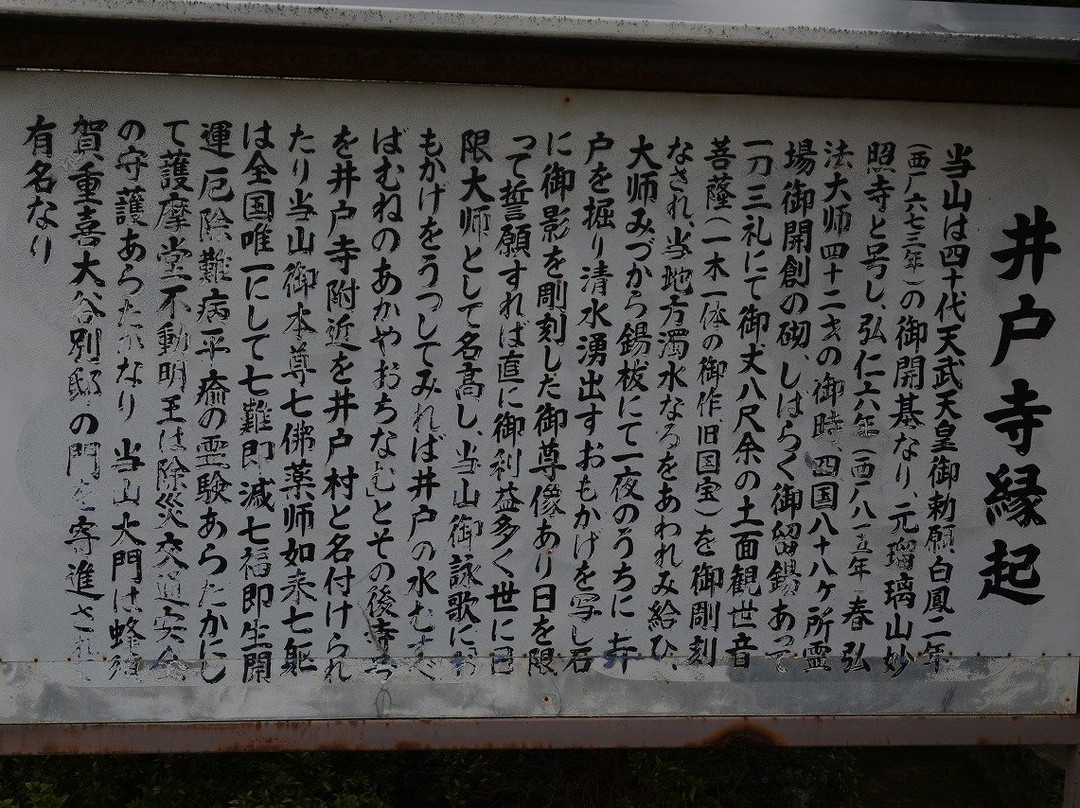 井戸寺縁起
当山は四十代天武天皇御勅願白鳳二年
(西厂六七三年)の御開基なり、元瑠璃山妙
照寺と号し、弘仁六年(西八八一五年春弘
法大师四十二才の御時、四国八十八ヶ所霊
場御開創の砌、しはらく御留錫あって
一刀三礼にて御丈八尺余の土面観世音
菩薩(一木一体の御作旧国宝)を御彫刻
なされ、当地方濁水なるをあわれみ給ひ、
大师みづから錫杖にて一夜のうちに井
戸を掘り清水湧出すおもかげを写し石
に御影を彫刻しだ御尊像あり日を限
って誓願すれば直に御利益多く世に日
限大师として名高し、当山御詠歌にお
もかげをうつしてみれば井戸の水むすべ
ばむねのあかやおちなむ」とその後寺
を井戸寺附近を井戸村と名付けられ
たり当山御本尊七佛薬师如来七躯
は全国唯一にして七難即滅七福即生開
運厄除難病平癒の霊験あらたかにし
て護摩堂不動明王は除災交通安全
の守護あらたかなり当山大門は蜂須
賀重喜大谷別邸の門を寄進され
有名なり